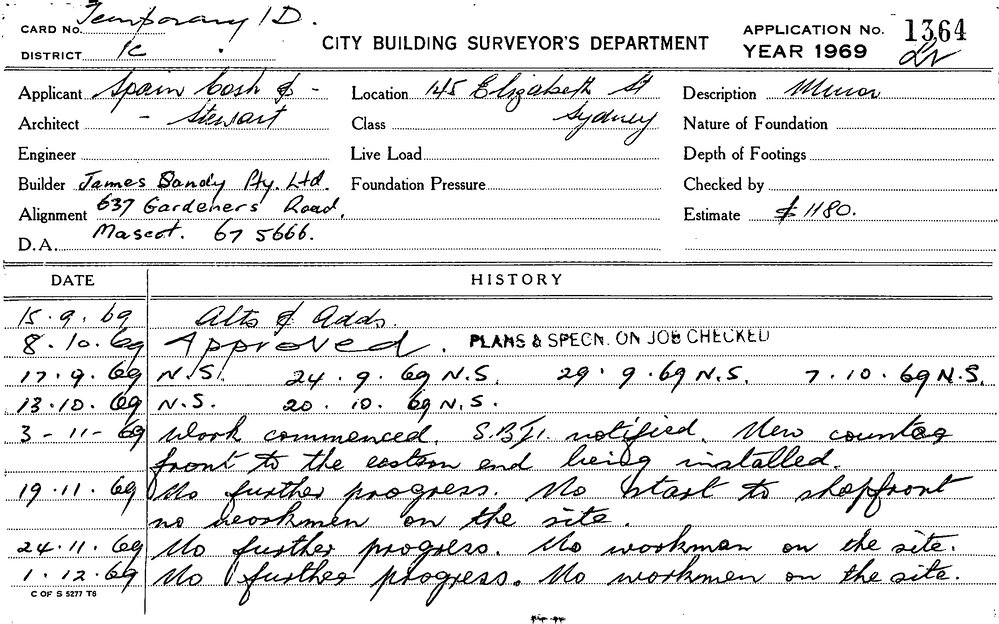 CARD No. Temporary 1D.
DISTRICT 1C
CITY BUILDING SURVEYOR'S DEPARTMENT
APPLICATION No. 1364
YEAR 1969
Applicant Spain Cosh & -
Architect - Stewart
Engineer
Builder James Sandy Pty. Ltd.
Alignment 637 Gardeners Road,
D.A. Mascot. 67 5666.
Location 145 Elizabeth St
Class Sydney
Live Load
Foundation Pressure
Description Minor
Nature of Foundation
Depth of Footings
Checked by
Estimate $1180.
DATE HISTORY
15.9.69 Alts & Adds.
8.10.69 Approved. PLANS & SPECN. ON JOB CHECKED
17.9.69 N.S. 24.9.69 N.S. 29.9.69 N.S. 7.10.69 N.S.
13.10.69 N.S. 20.10.69 N.S.
3-11-69 Work commenced. S.B.I. notified. New counter
front to the eastern end being installed.
19.11.69 No further progress. No start to shopfront
no workmen on the site.
24.11.69 No further progress. No workmen on the site.
1.12.69 No further progress. No workmen on the site.
C OF S 5277 T6